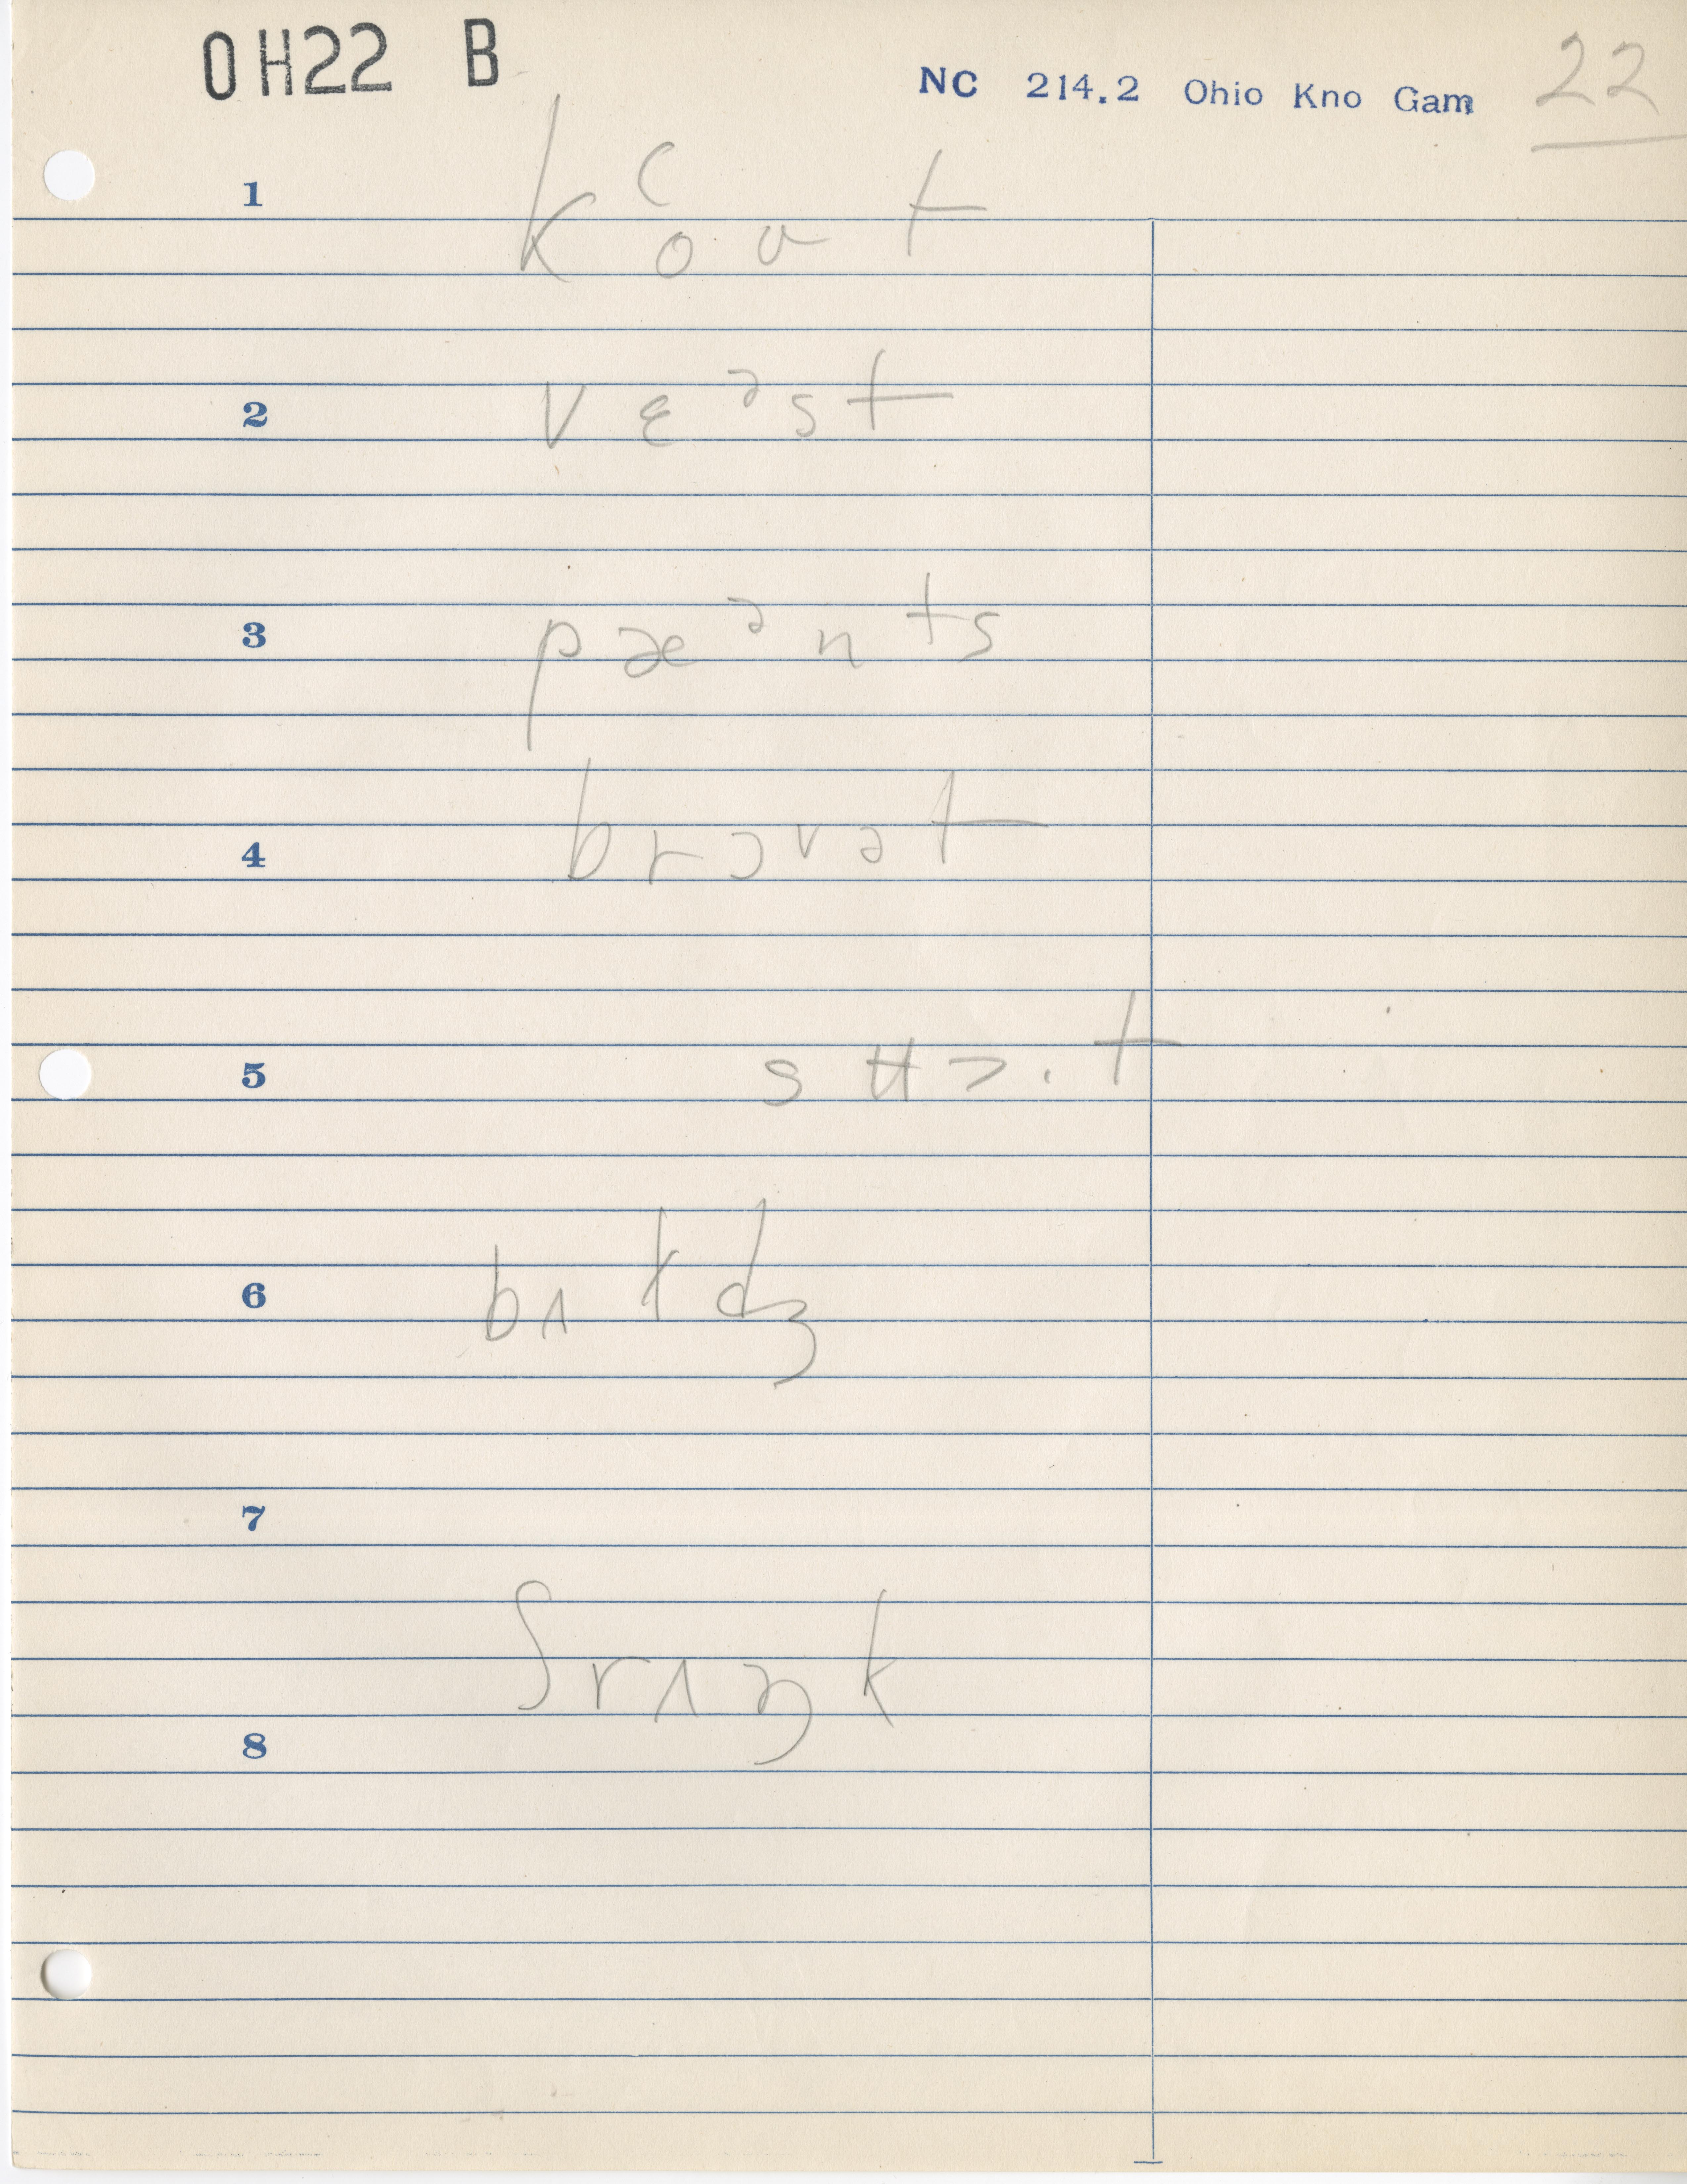 OH22 B
NC 214.2 Ohio Kno Gam 22
1 kʿoʊt
2 vɛᵊst
3 pæᵊnts
4 brɔvət
5 sʉ>.t
6 bʌldʒ
7
ʃrʌŋk
8